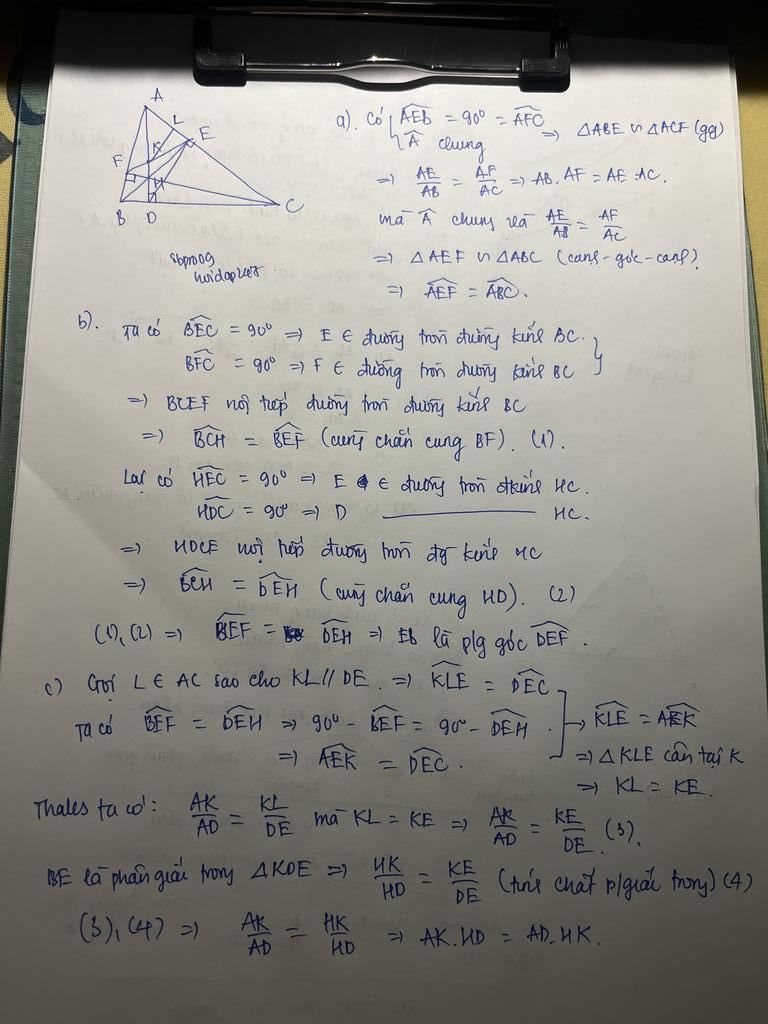 A
L
E
K
F
H
B
D
C
a). Có { \widehat{AEB} = 90° = \widehat{AFC}
\widehat{A} chung
=> △ABE ∽ △ACF (gg)
=> AE/AB = AF/AC => AB. AF = AE . AC.
mà \widehat{A} chung và AE/AB = AF/AC
=> △AEF ∽ △ABC (cạnh - góc - cạnh)
=> \widehat{AEF} = \widehat{ABC}.
b). Ta có \widehat{BEC} = 90° => E ∈ đường tròn đường kính BC.
\widehat{BFC} = 90° => F ∈ đường tròn đường kính BC
=> BCEF nội tiếp đường tròn đường kính BC
=> \widehat{BCH} = \widehat{BEF} (cùng chắn cung BF). (1).
Lại có \widehat{HEC} = 90° => E ∈ đường tròn đkính HC.
\widehat{HDC} = 90° => D ——— HC.
=> HDCE nội tiếp đường tròn đg kính HC
=> \widehat{BCH} = \widehat{DEH} (cùng chắn cung HD). (2)
(1), (2) => \widehat{BEF} = \widehat{DEH} => EB là p/g góc \widehat{DEF}.
c) Gọi L ∈ AC sao cho KL // DE. => \widehat{KLE} = \widehat{DEC}
Ta có \widehat{BEF} = \widehat{DEH} => 90° - \widehat{BEF} = 90° - \widehat{DEH}.
=> \widehat{AEK} = \widehat{DEC}.
=> \widehat{KLE} = \widehat{AEK}
=> △KLE cân tại K
=> KL = KE.
Thales ta có: AK/AD = KL/DE mà KL = KE => AK/AD = KE/DE. (3).
BE là phân giác trong △KDE => HK/HD = KE/DE (tính chất p/giác trong) (4)
(3), (4) => AK/AD = HK/HD => AK.HD = AD.HK.